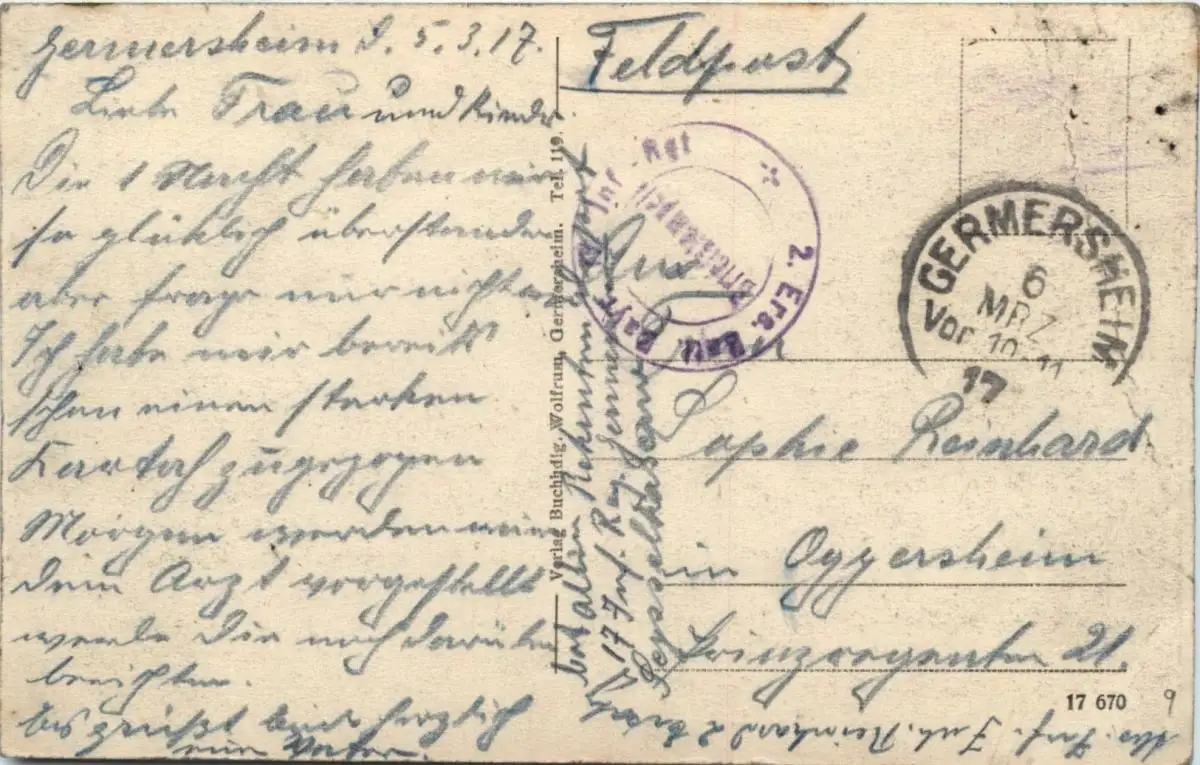 Germersheim d. 5.3.17.
Liebe Frau und Kinder
Die 1 Nacht haben wir
so glücklich überstanden
aber frage nur nicht
Ich habe mir bereits
schon einen starken
Kartah zugezogen
Morgen werden wir
dem Arzt vorgestellt
werde Dir noch darüber
berichten.
Es grüßt Euch herzlich
euer Vater.
Verlag Buchhdlg. Wolfrum, Germersheim. Tel. 119.
Feldpost
2. Ers. Batl. Bayr. Inf. Rgt
Briefstempel
GERMERSHEIM
6
MRZ
Vor. 10-11
17
An
Frau
Sophie Reinhard
in Oggersheim
Prinzregenten 21.
17 670
9
Abs. Inf. Reinhard 2 Ers.
17 Inf. Reg. Germersheim